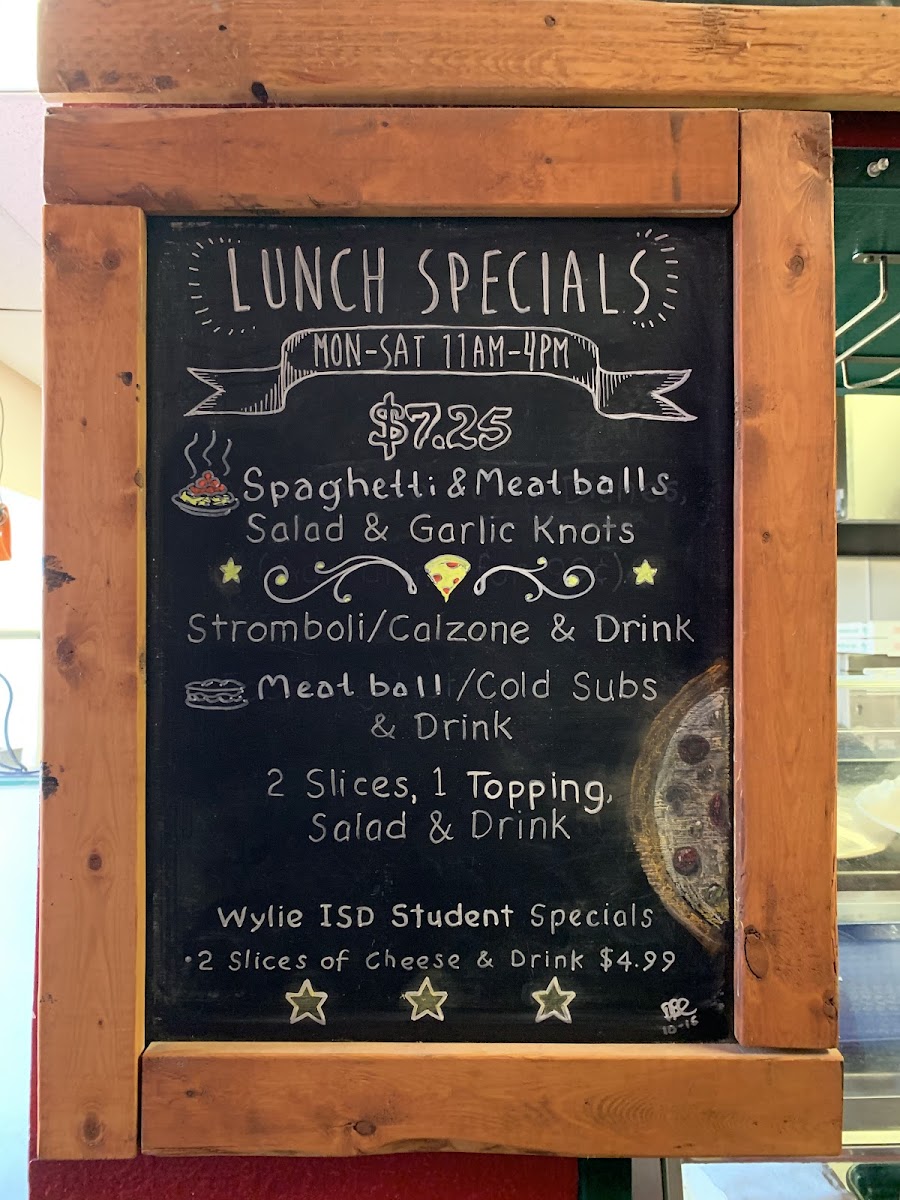 LUNCH SPECIALS
MON-SAT 11AM-4PM
$7.25
Spaghetti & Meatballs
Salad & Garlic Knots
Stromboli/Calzone & Drink
Meatball/Cold Subs
& Drink
2 Slices, 1 Topping,
Salad & Drink
Wylie ISD Student Specials
•2 Slices of Cheese & Drink $4.99